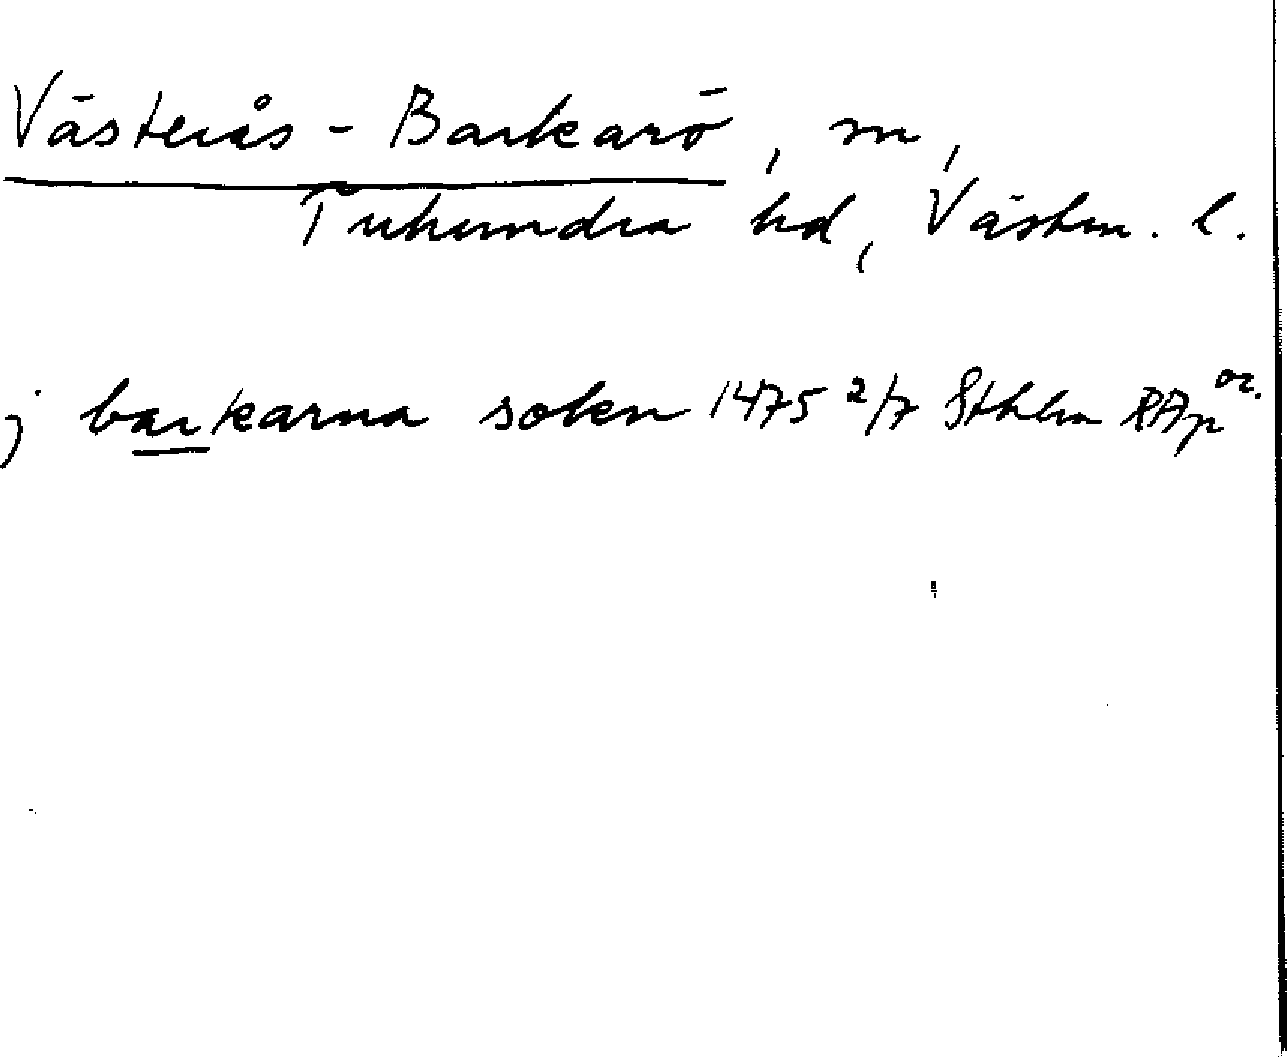 Västerås-Barkarö, sn,
Tuhundra hd, Västm. l.
j barkarna soken 1475 2/7 Sthlm RAp or.